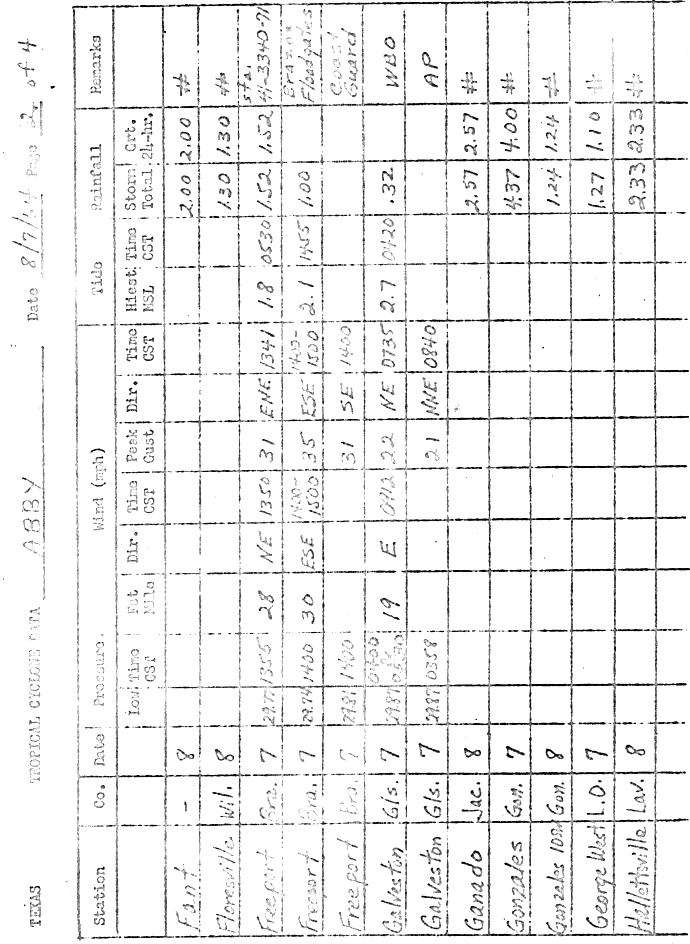 TEXAS TROPICAL CYCLONE DATA ABBY Date 8/7/64 Page 2 of 4
Station Co. Date Pressure Wind (mph) Tide Rainfall Remarks
Low Time CST Fst Mile Dir. Time CST Peak Gust Dir. Time CST Hiest MSL Time CST Storm Total Grt. 24-hr.
Fant - 8 2.00 2.00 #
Floresville Wil. 8 1.30 1.30 #
Freeport Bra. 7 29.77 1355 28 NE 1350 31 ENE 1341 1.8 0530 1.52 1.52 sta. 41-3340-71
Freeport Bra. 7 29.74 1400 30 ESE 1400-1500 35 ESE 1400-1500 2.1 1455 1.00 Brazos Floodgates
Freeport Bra. 7 29.81 1400 31 SE 1400 Coast Guard
Galveston Gls. 7 29.87 0400 19 E 0712 22 NE 0735 2.7 0420 .32 WBO
Galveston Gls. 7 29.87 0358 21 NNE 0840 AP
Ganado Jac. 8 2.57 2.57 #
Gonzales Gon. 7 4.37 4.00 #
Gonzales Gon. 8 1.24 1.24 #
George West L.O. 7 1.27 1.10 #
Hallettsville Lav. 8 2.33 2.33 #